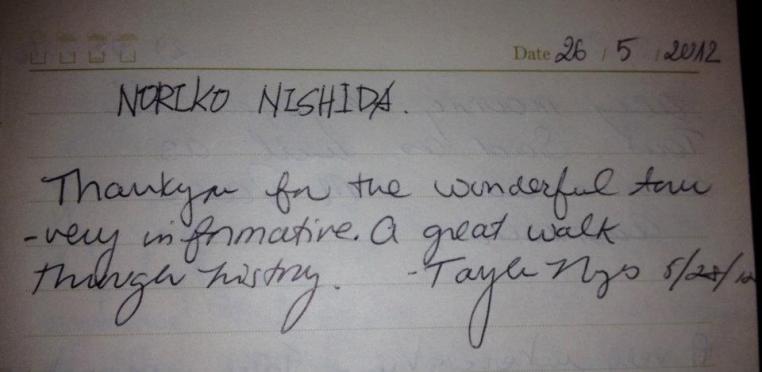 Date 26 / 5 / 2012
NORIKO NISHIDA.
Thankyou for the wonderful tour
-very informative. A great walk
through history. -Tayla 5/28/12